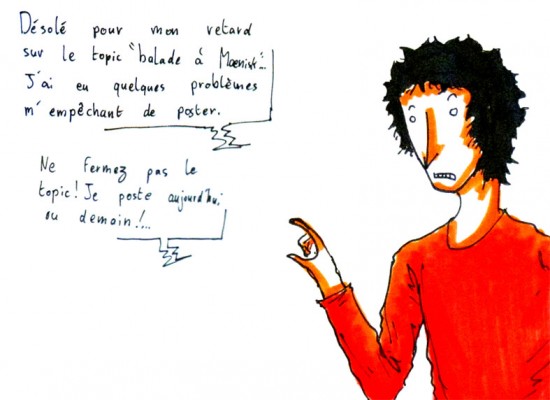 Désolé pour mon retard
sur le topic "balade à Maenistr"...
J'ai eu quelques problèmes
m'empêchant de poster.
Ne fermez pas le
topic! Je poste aujourd'hui
ou demain!...